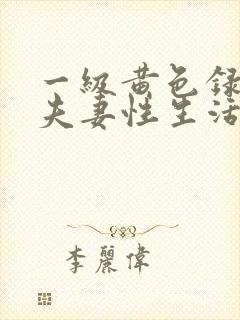 一級黄色録
夫妻性生活
李麗偉